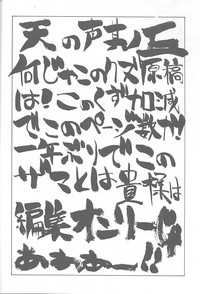 天の声其ノ五
何じゃこのクズ原稿
は!このくずカロ減
でこのページ数か!!
一年ぶりでこの
ザマとは貴様は
編集オンリーか
あぁぁー!!